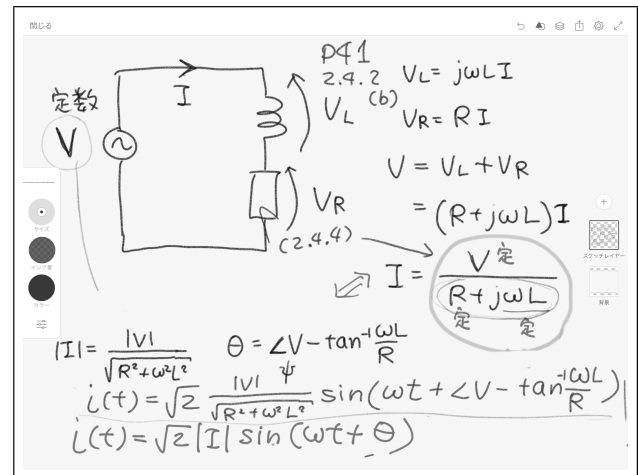 閉じる
P41
2.4.2
(b)
定数
V
I
V_L
V_R
(2.4.4)
V_L = jωLI
V_R = RI
V = V_L + V_R
= (R+jωL)I
I = V定 / (R定 + jωL定)
|I| = |V| / √(R²+ω²L²)
θ = ∠V − tan⁻¹ ωL/R
ψ
i(t) = √2 |V| / √(R²+ω²L²) sin(ωt + ∠V − tan⁻¹ ωL/R)
i(t) = √2 |I| sin(ωt + θ)
サイズ
インク量
カラー
スケッチレイヤー
背景